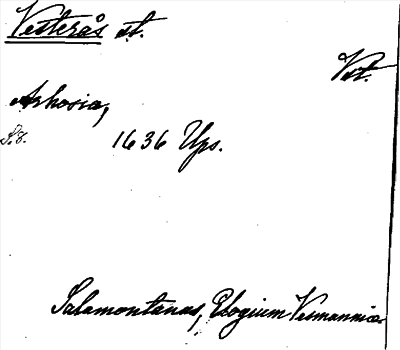 Vesterås st.
Vst.
Arhosia,
S.J. 1636 Ups.
Salamontanus, Elogium Vesmanniæ